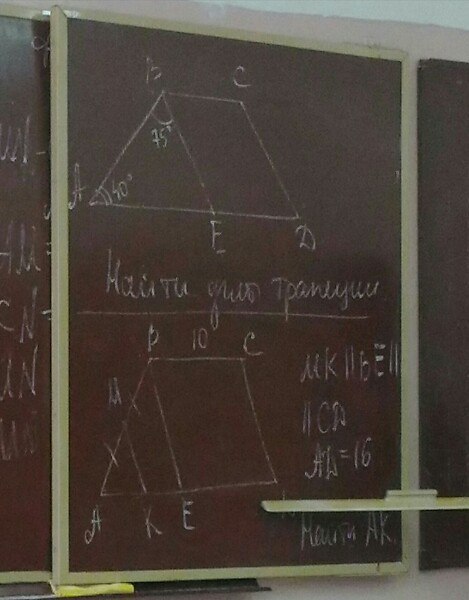 B C
75°
A 40°
E D
Найти углы трапеции
B 10 C
M
A K E
MK || BE ||
|| CD
AD = 16
Найти AK.